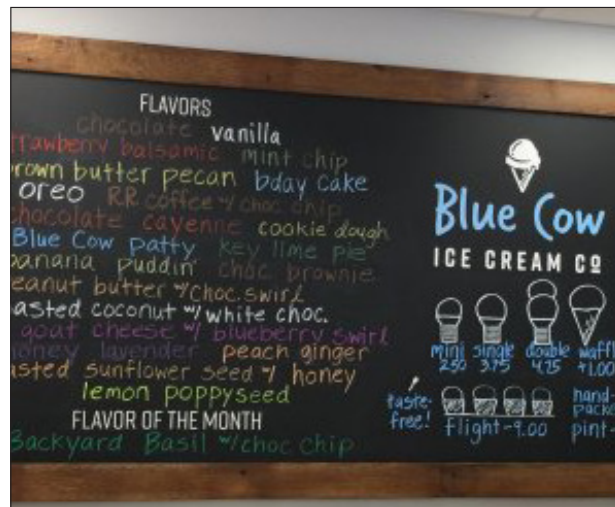 FLAVORS
chocolate vanilla
trawberry balsamic mint chip
brown butter pecan bday cake
oreo RR coffee w/ choc chip
chocolate cayenne cookie dough
Blue Cow Patty key lime pie
banana puddin' choc brownie
eanut butter w/choc. swirl
asted coconut w/ white choc.
goat cheese w/ blueberry swirl
honey lavender peach ginger
asted sunflower seed w/ honey
lemon poppyseed
FLAVOR OF THE MONTH
Backyard Basil w/choc chip
Blue Cow
ICE CREAM CO
mini single double waffl
2.50 3.75 4.75 +1.00
taste-
free!
flight-9.00
hand-
packe
pint-